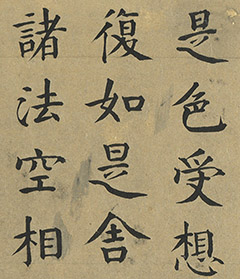 是色受想
復如是舍
諸法空相